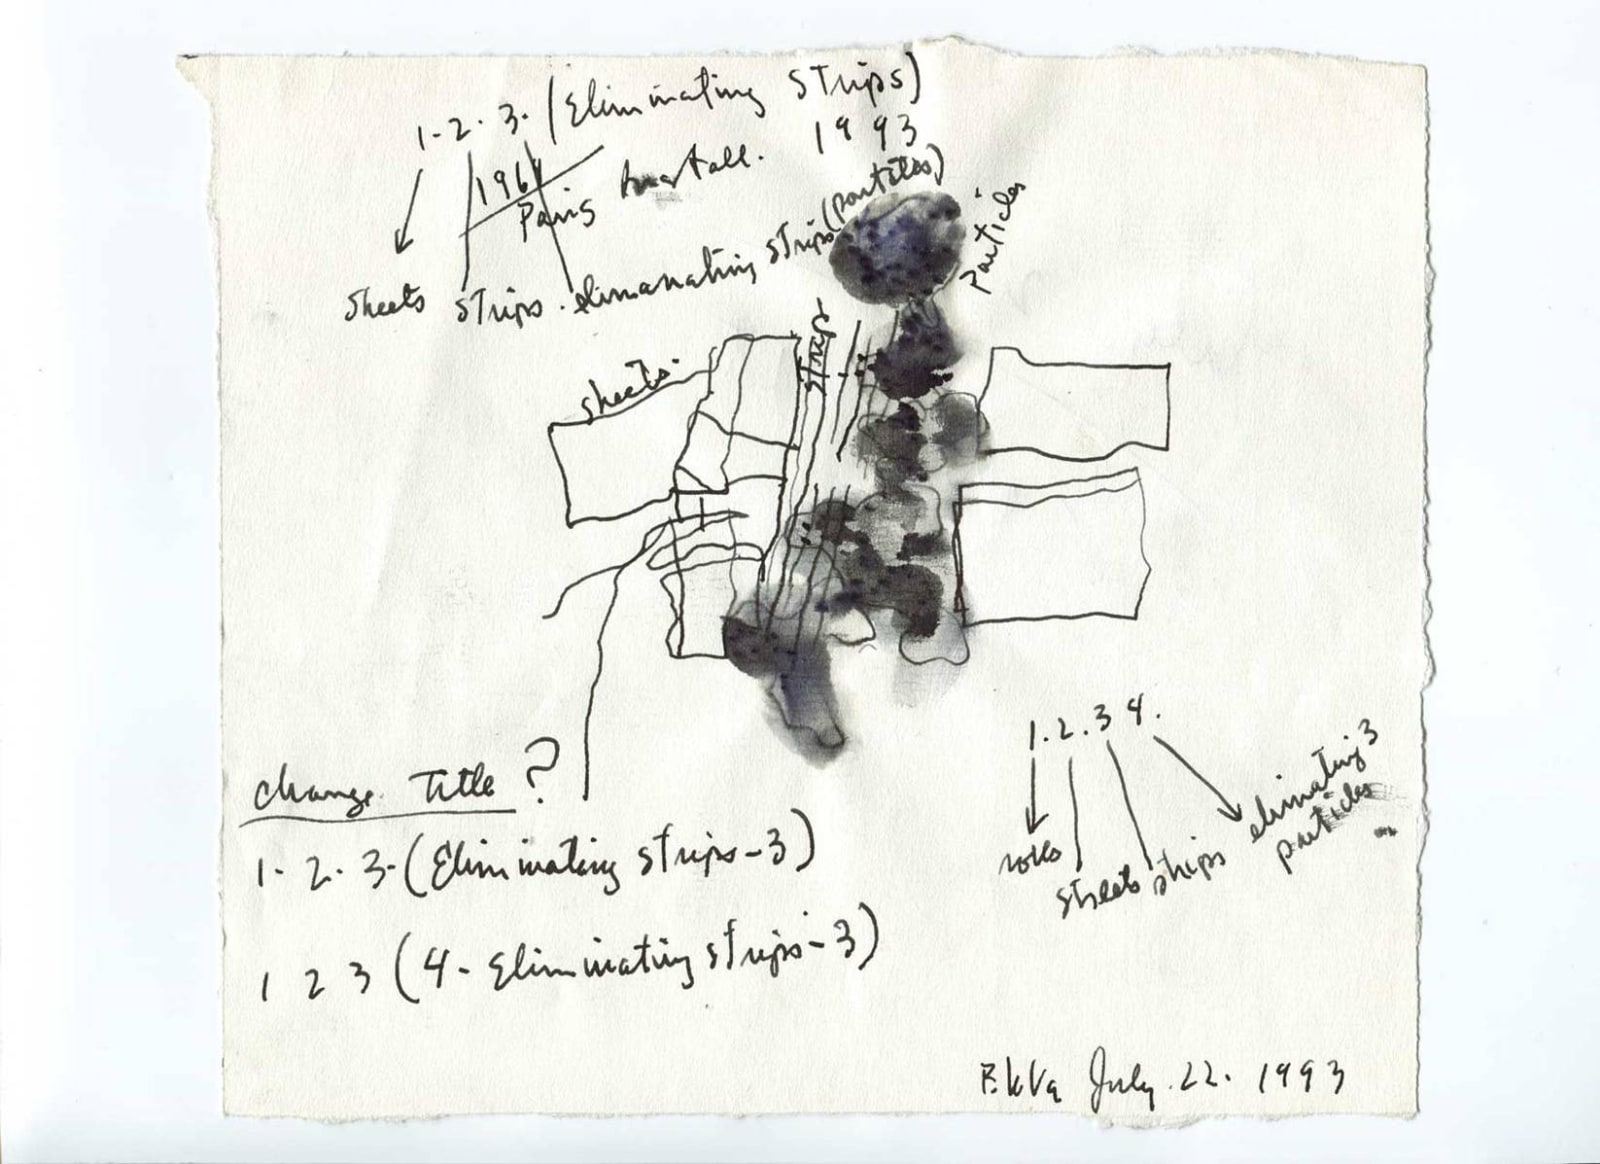 1-2. 3. (Eliminating Strips)
1964 1993
Paris Install.
Sheets strips. elimanating strips (particles)
Particles
strips
sheets.
1.2.3 4.
Change Title ?
eliminating 3
particles
sheets strips
1. 2. 3-(Eliminating strips-3)
1 2 3 (4- Eliminating strips-3)
July. 22. 1993